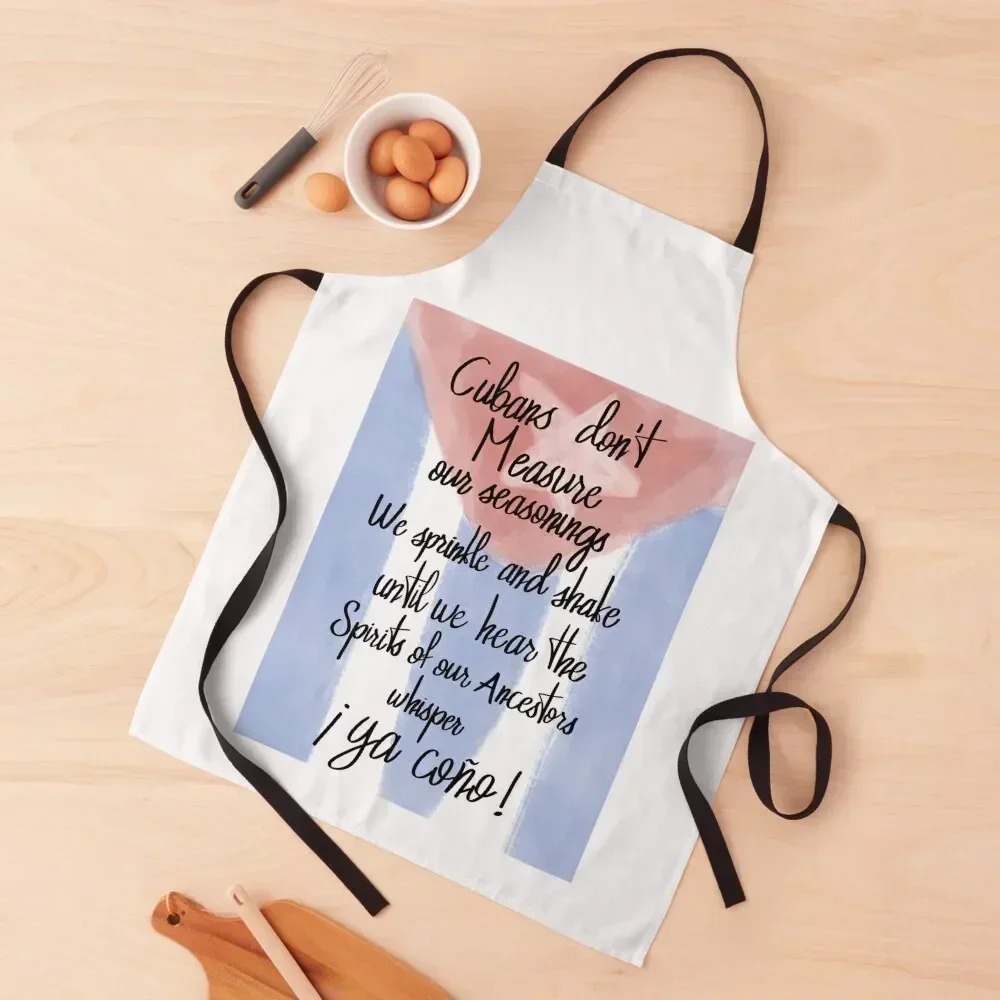 Cubans don't
Measure
our seasonings
We sprinkle and shake
until we hear the
Spirits of our Ancestors
whisper
¡ya coño!